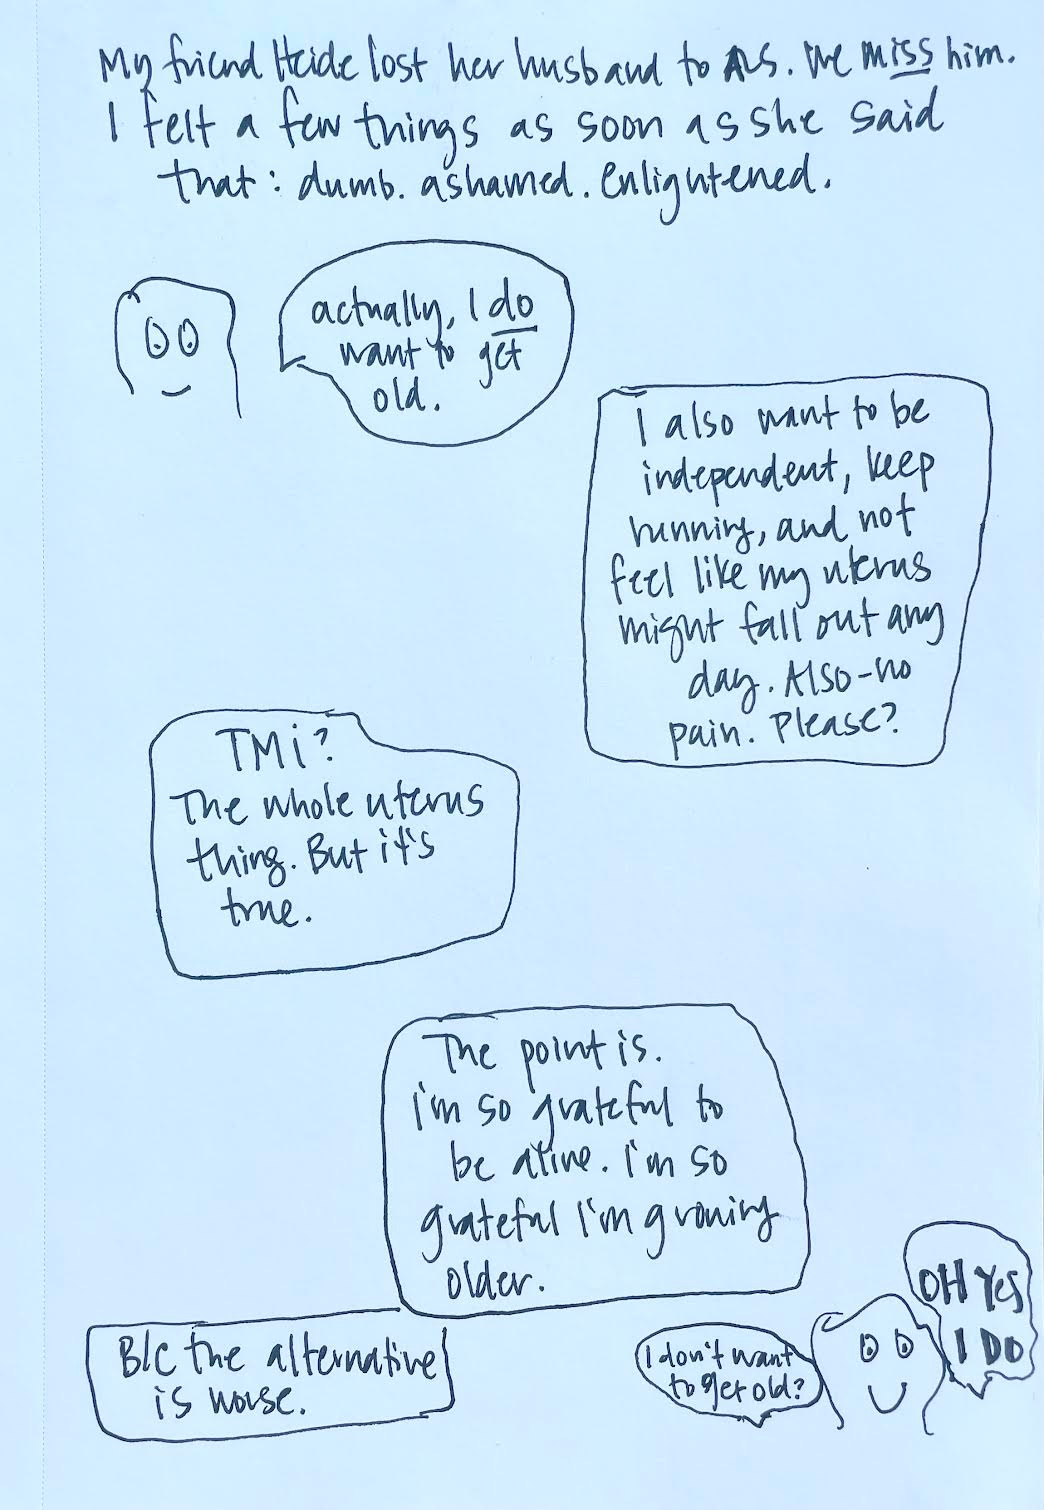 My friend Heide lost her husband to ALS. We miss him.
I felt a few things as soon as she said
that: dumb. ashamed. Enlightened.
actually, I do
want to get
old.
I also want to be
independent, keep
running, and not
feel like my uterus
might fall out any
day. Also-no
pain. Please?
TMi?
The whole uterus
thing. But it's
true.
The point is.
i'm so grateful to
be alive. i'm so
grateful i'm growing
older.
B/c the alternative
is worse.
I don't want
to get old?
OH YES
I DO